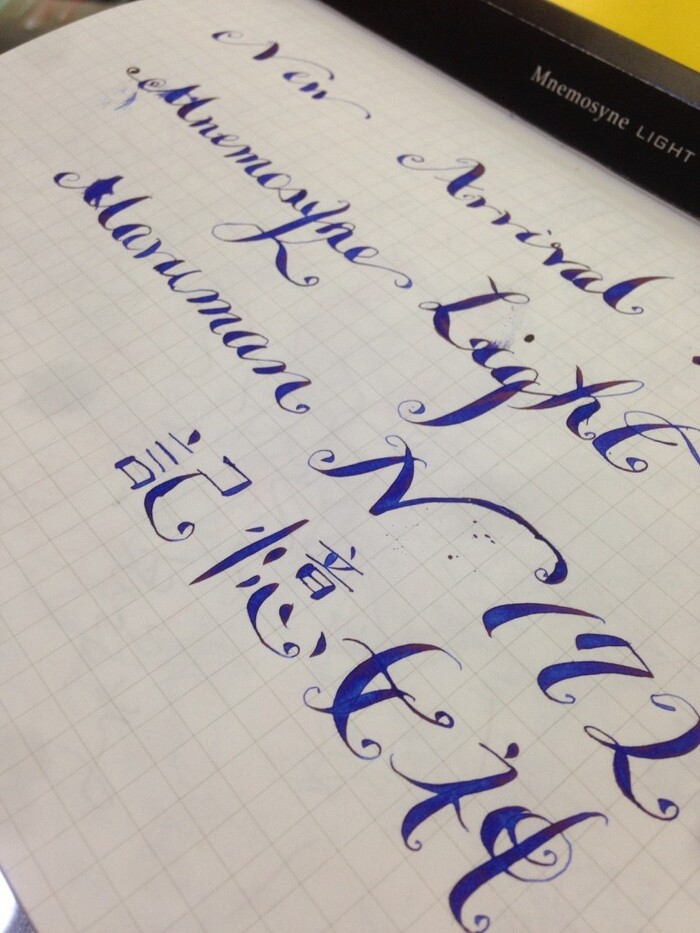 Mnemosyne LIGHT
New Arrival
Mnemosyne Light
Maruman N172
記憶女神